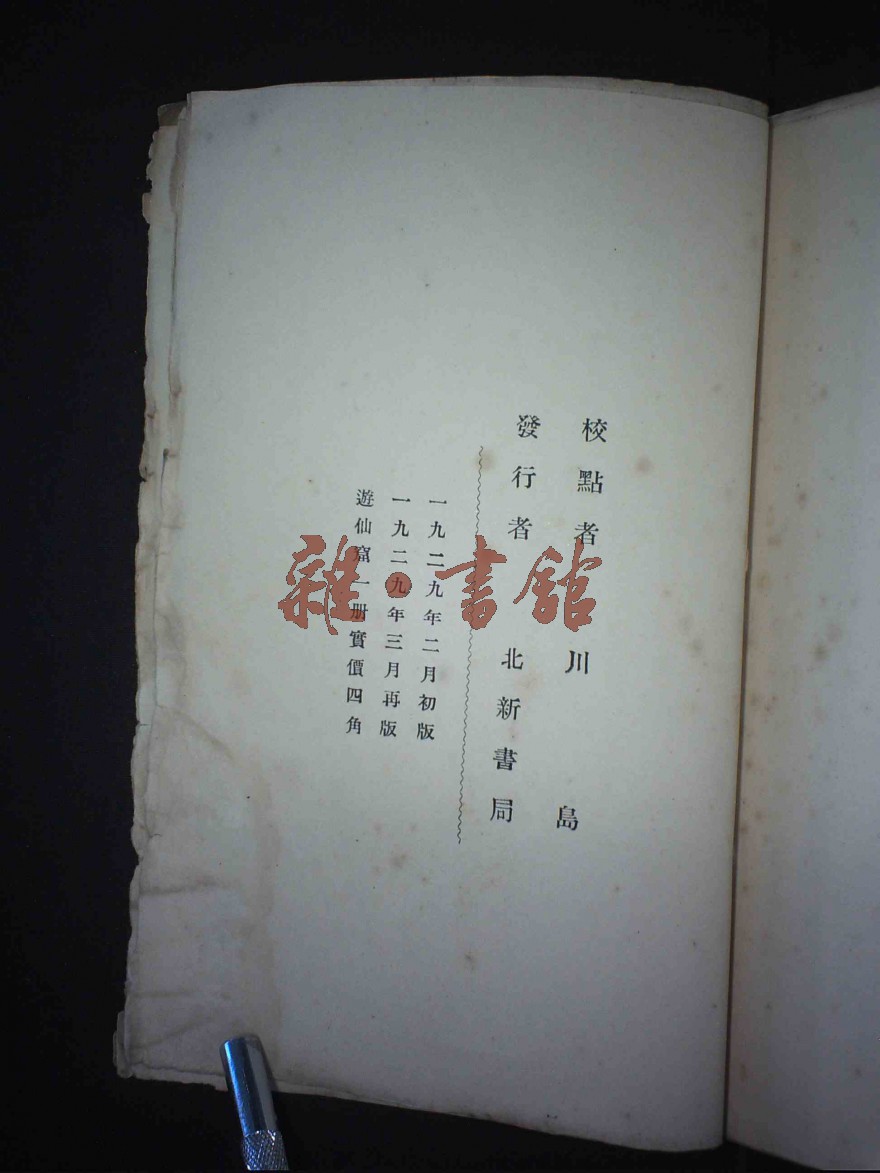 校點者 川島
發行者 北新書局
一九二九年二月初版
一九二九年三月再版
遊仙窟一册實價四角
雜·書館